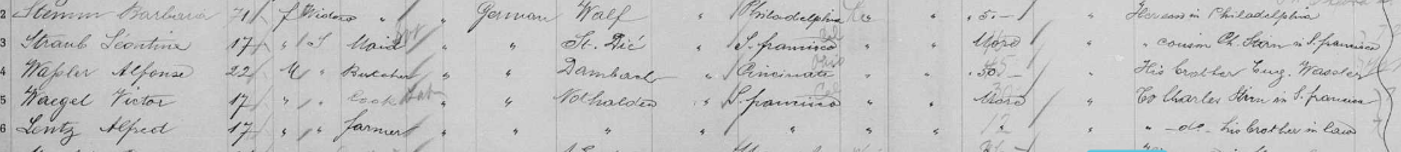 2 Stemm Barbara 71 f Widow " " German Walf " Philadelphia " " 5.- " Herself in Philadelphia
3 Straub Léontine 17 " S Maid " " " St. Dié " S. francisco " " More " " cousin Ch. Stirn in S. francisco
4 Wassler Alfonse 22 M " Butcher " " " Dambach " Cincinate Ohio " " 50 - " His brother Eug. Wassler
5 Waegel Victor 17 " " Cook " " Nothalden " S. francisco Cal " " More " To Charles Stirn in S. francisco
6 Lentz Alfred 17 " " farmer " " " " " " " " 12 " " - do - his brother in law